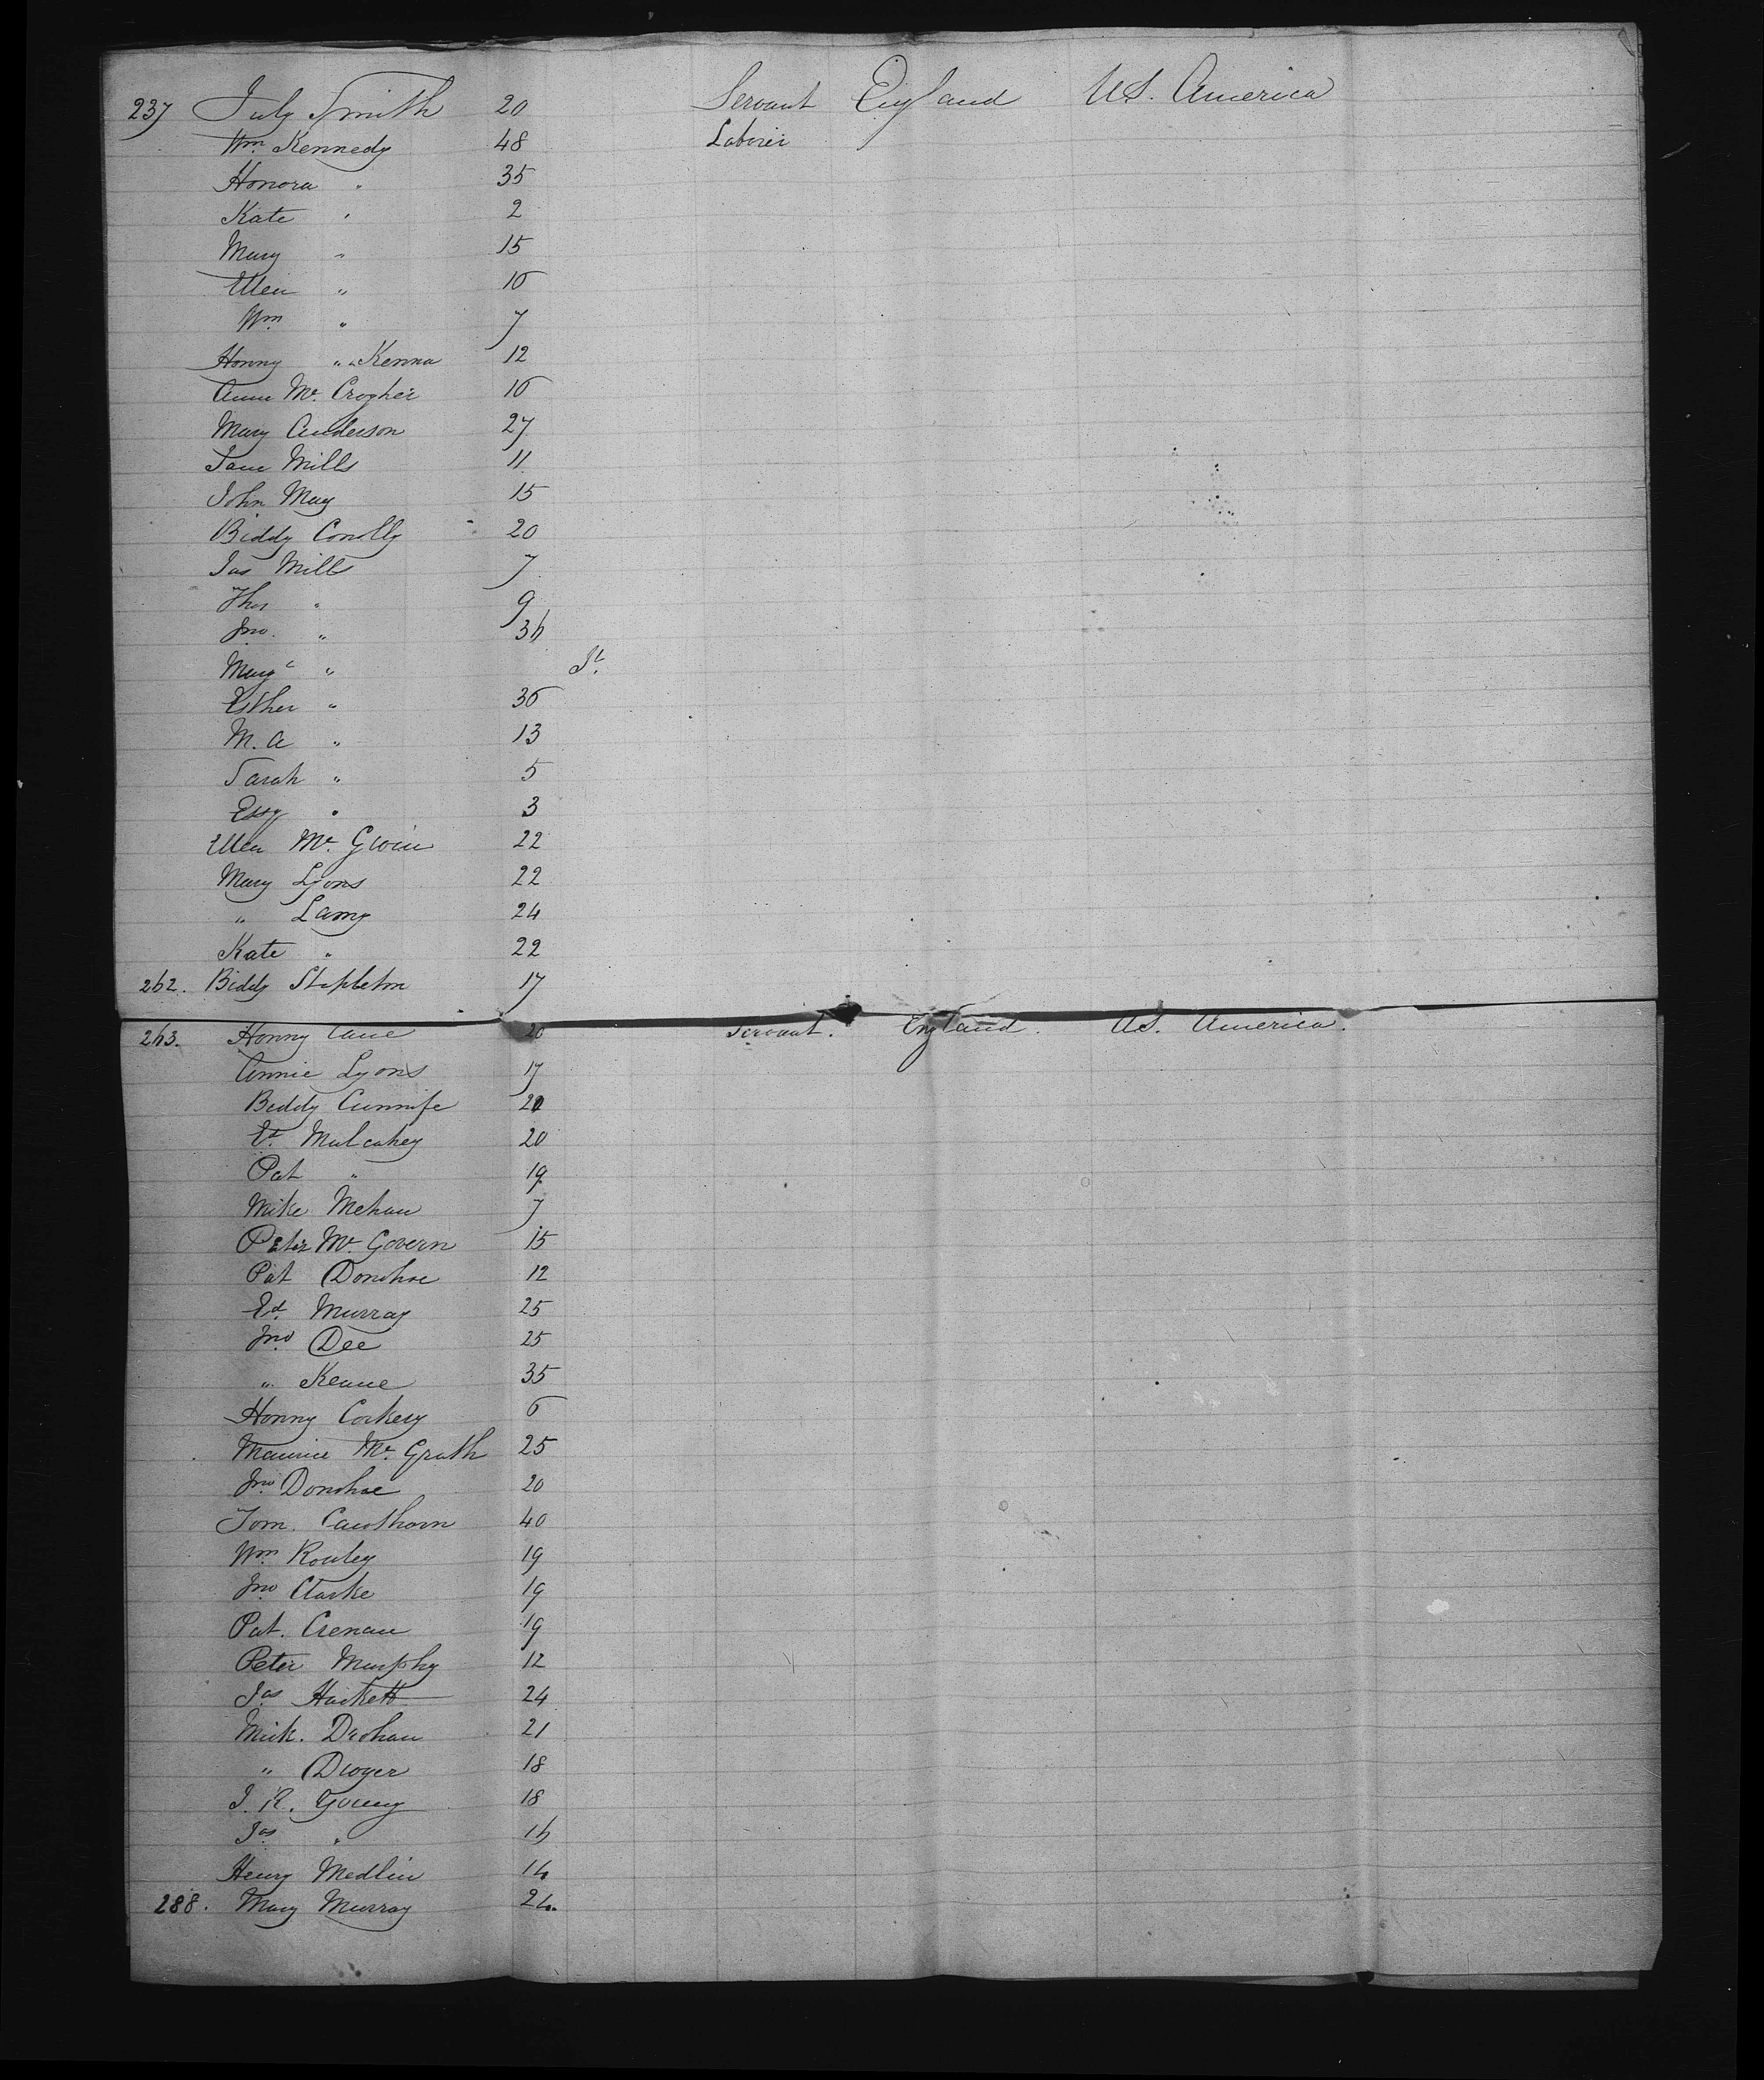 237 July Smith 20 Servant England US. America
Wm. Kennedy 48 Laborer
Honora " 35
Kate " 2
Mary " 15
Ellen " 10
Wm " 7
Honny " " Kenna 12
Anne Mc. Crogher 16
Mary Anderson 27
Jane Mills 11
John May 15
Biddy Conolly 20
Jas Mills 7
Thos " 9
Jno. " 36
Margt "
Esther " 36
M. A " 13
Sarah " 5
Essy " 3
Ellen Mc. 22
Mary Lyons 22
" Lamy 24
Kate " 22
262. Biddy Stapleton 17
263. Honny Cane 20 Servant. England. US. America.
Annie Lyons 17
Biddy Cunnife 20
Ed. Mulcahey 20
Pat " 19
Mike Mehan 7
Peter Mc. Govern 15
Pat Donohoe 12
Ed. Murray 25
Jno Dee 25
" Keane 35
Honny Corkery 6
Maurice Mc. Grath 25
Jno Donohoe 20
Tom. Cawthorn 40
Wm Rouley 19
Jno Clarke 19
Pat. Crenan 19
Peter Murphy 12
Jas Hackett 24
Mick. Drohan 21
" Dwyer 18
J. R. Young 18
Jas " 16
Henry Medlin 14
288. Mary Murray 24.